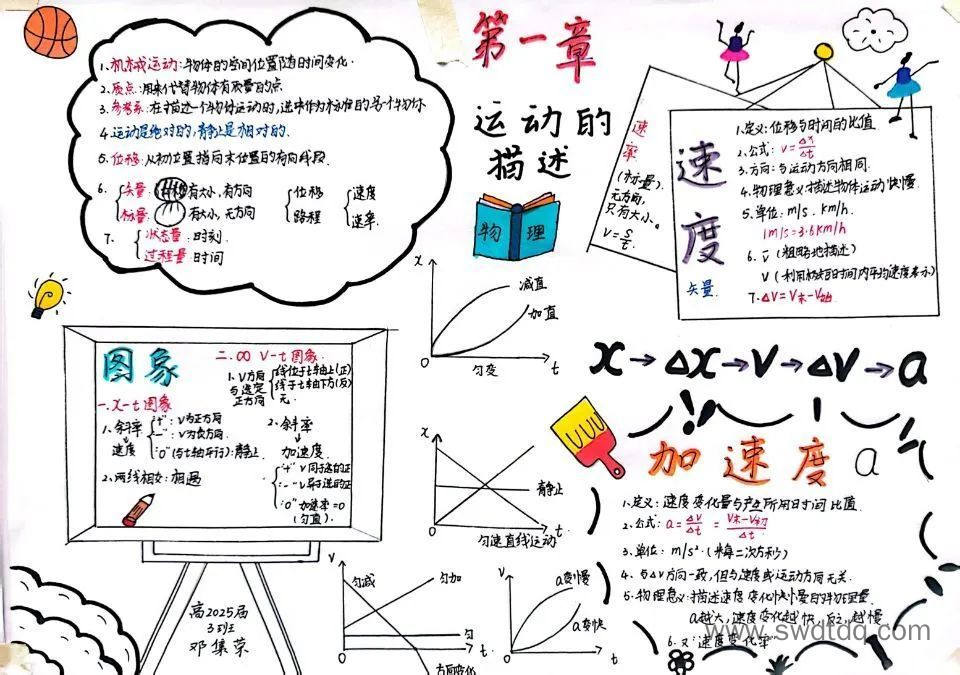 第一章
运动的
描述
物理
1、机械运动:物体的空间位置随时间变化.
2、质点:用来代替物体有质量的点
3、参考系:在描述一个物体运动时,选来作为标准的另一个物体
4.运动是绝对的,静止是相对的.
5、位移:从初位置指向末位置的有向线段.
6、矢量:有大小,有方向
标量:有大小,无方向
位移
路程
速度
速率
7、状态量:时刻
过程量:时间
速率
(标量).
无方向,
只有大小。
V=s/t.
速度
矢量.
1.定义:位移与时间的比值
2.公式:v=Δx/Δt
3.方向:与运动方向相同.
4.物理意义:描述物体运动快慢.
5.单位:m/s.km/h.
1m/s=3.6km/h
6.v̄(粗略地描述)
7.ΔV=V末-V始
x
减直
加直
0
匀变
t
x→Δx→V→ΔV→a
图象
一.x-t图象
1.斜率
速度
"+":V为正方向
"-":V为负方向.
"0"(与t轴平行):静止.
2、两线相交:相遇
二.∞ V-t图象.
1、V方向与选定正方向
线位于t轴上(正)
线于t轴下方(反)
无.
2、斜率
加速度.
"0"加速率=0
(匀直).
x
静止
0
匀速直线运动
t.
v
匀减
匀加
匀
t
0
方向变化
v
a变慢
a变快
0
t.
加速度a
1.定义:速度变化量与产生所用时间比值.
2.公式:a=Δv/Δt=V末-V初/Δt
3.单位:m/s².(米每二次方秒)
4、与ΔV方向一致,但与速度或运动方向无关.
5.物理意义:描述速度变化快慢的物理量.
a越大,速度变化越快,反之,越慢
6.又"速度变化率"
高2025届
3班
邓集荣
www.swdtdq.com